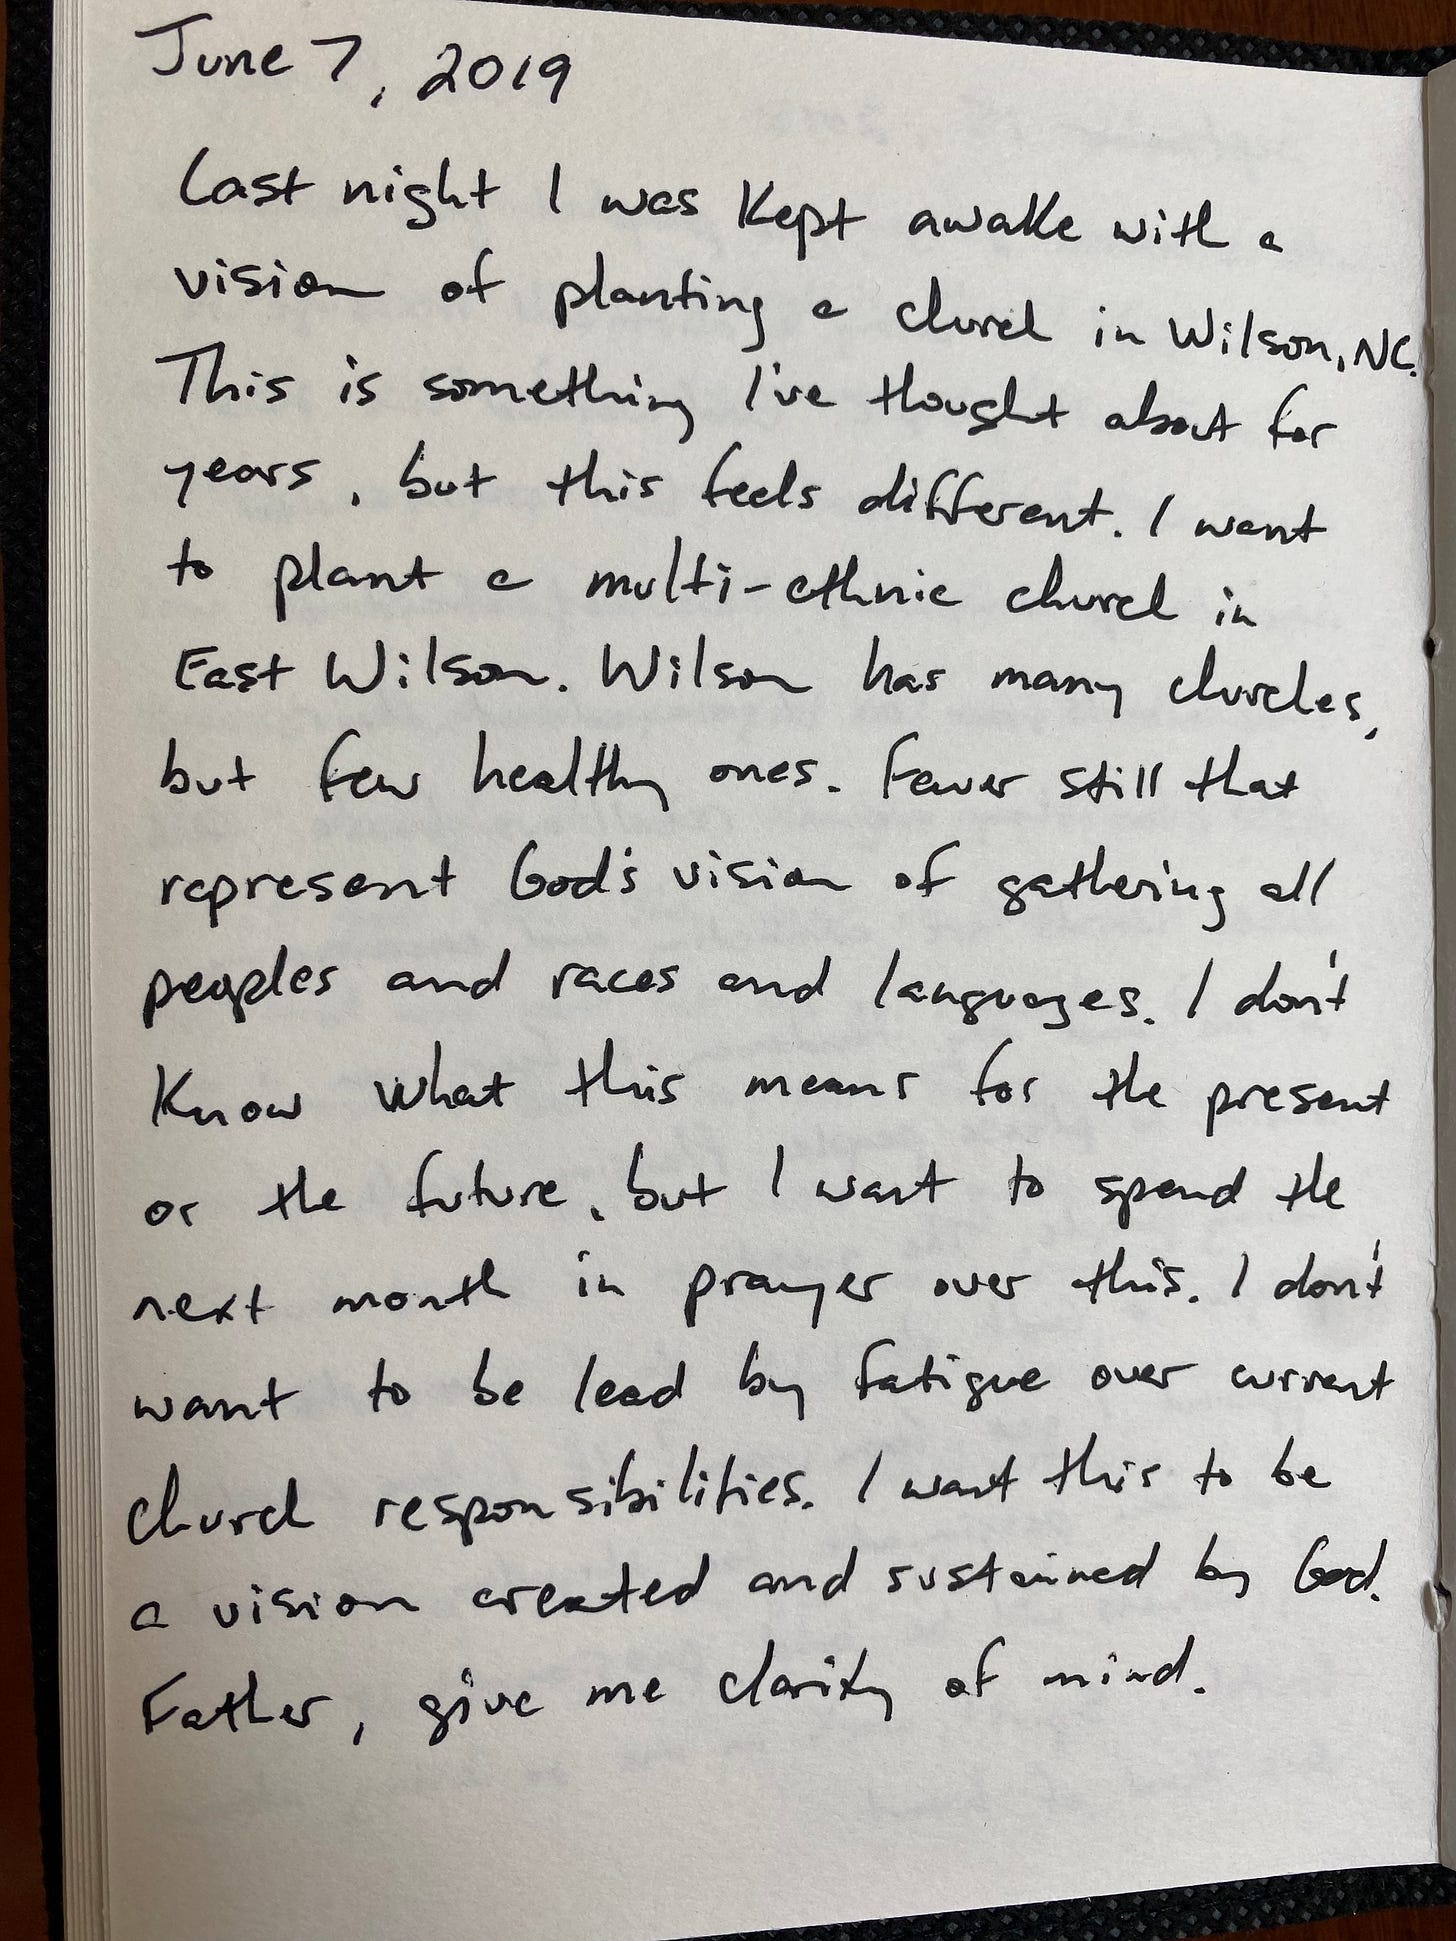 June 7, 2019
Last night I was kept awake with a
vision of planting a church in Wilson, NC.
This is something I've thought about for
years, but this feels different. I want
to plant a multi-ethnic church in
East Wilson. Wilson has many churches,
but few healthy ones. Fewer still that
represent God's vision of gathering all
peoples and races and languages. I don't
know what this means for the present
or the future, but I want to spend the
next month in prayer over this. I don't
want to be lead by fatigue over current
church responsibilities. I want this to be
a vision created and sustained by God.
Father, give me clarity of mind.